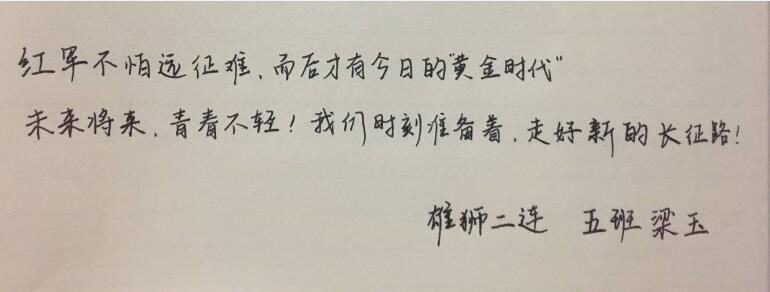 红军不怕远征难，而后才有今日的"黄金时代"
未来将来，青春不轻！我们时刻准备着，走好新的长征路！
雄狮二连 五班 梁玉